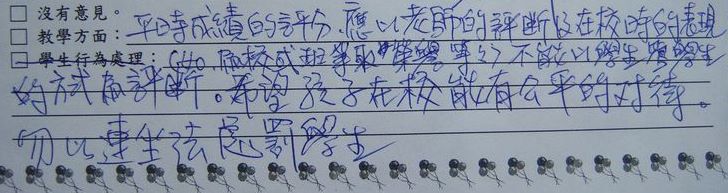 □ 沒有意見。
□ 教學方面：平時成績的評分，應以老師的評斷及在校時的表現
□ 學生行為處理：做校或班爭取"榮譽等"不能以學生賣學生
的方式做評斷。希望孩子在校能有公平的对待。
勿以連坐法處罰學生